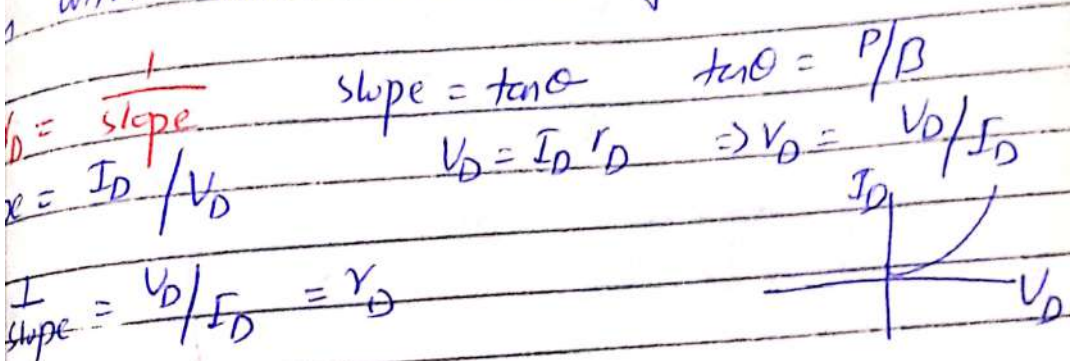 r_D = 1/slope slope = tanθ tanθ = P/B
V_D = I_D r_D => r_D = V_D/I_D
= I_D/V_D
I_D
1/slope = V_D/I_D = r_D
V_D